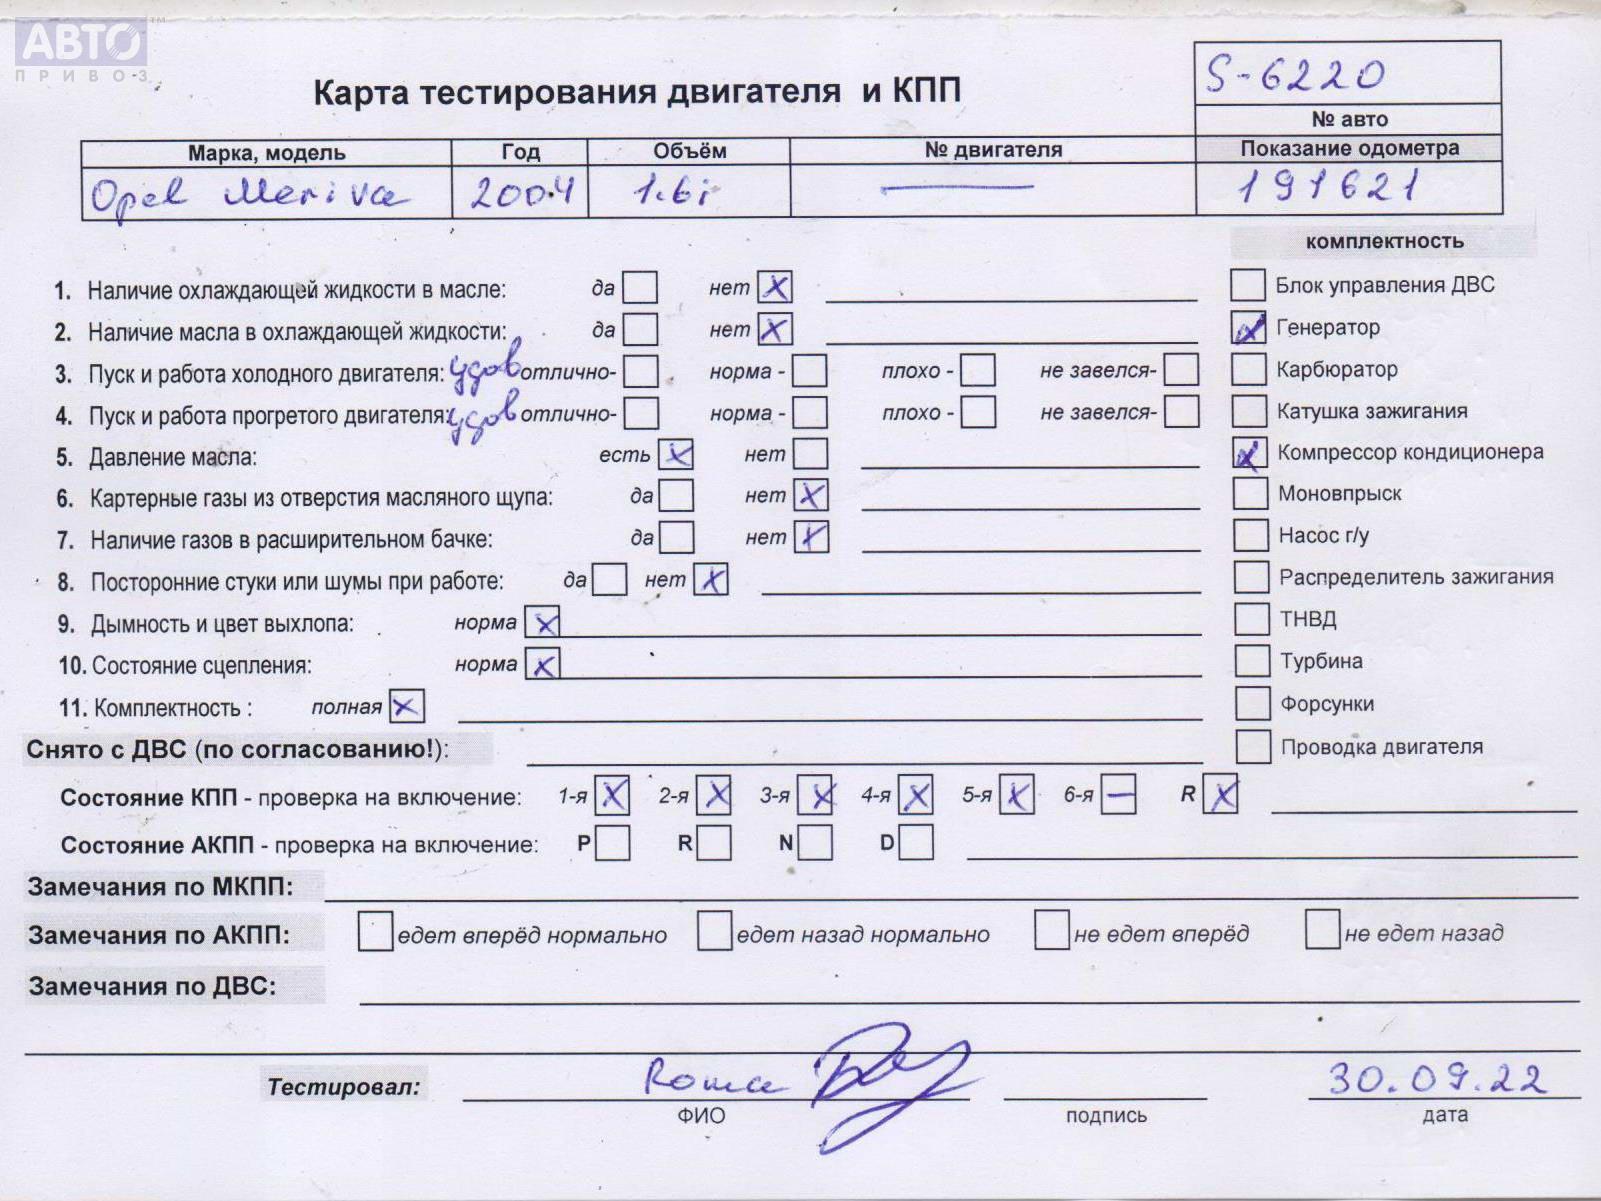 АВТО ТМ
ПРИВОЗ
S-6220
Карта тестирования двигателя и КПП
№ авто
Марка, модель Год Объём № двигателя Показание одометра
Opel Meriva 2004 1.6i — 191621
комплектность
1. Наличие охлаждающей жидкости в масле: да нет X
Блок управления ДВС
2. Наличие масла в охлаждающей жидкости: да нет X
Генератор X
3. Пуск и работа холодного двигателя: удов отлично- норма - плохо - не завелся-
Карбюратор
4. Пуск и работа прогретого двигателя: удов отлично- норма - плохо - не завелся-
Катушка зажигания
5. Давление масла: есть X нет
Компрессор кондиционера X
6. Картерные газы из отверстия масляного щупа: да нет X
Моновпрыск
7. Наличие газов в расширительном бачке: да нет X
Насос г/у
8. Посторонние стуки или шумы при работе: да нет X
Распределитель зажигания
9. Дымность и цвет выхлопа: норма X
ТНВД
10. Состояние сцепления: норма X
Турбина
11. Комплектность : полная X
Форсунки
Снято с ДВС (по согласованию!):
Проводка двигателя
Состояние КПП - проверка на включение: 1-я X 2-я X 3-я X 4-я X 5-я X 6-я — R X
Состояние АКПП - проверка на включение: P R N D
Замечания по МКПП:
Замечания по АКПП: едет вперёд нормально едет назад нормально не едет вперёд не едет назад
Замечания по ДВС:
Тестировал: Рома 30.09.22
ФИО подпись дата